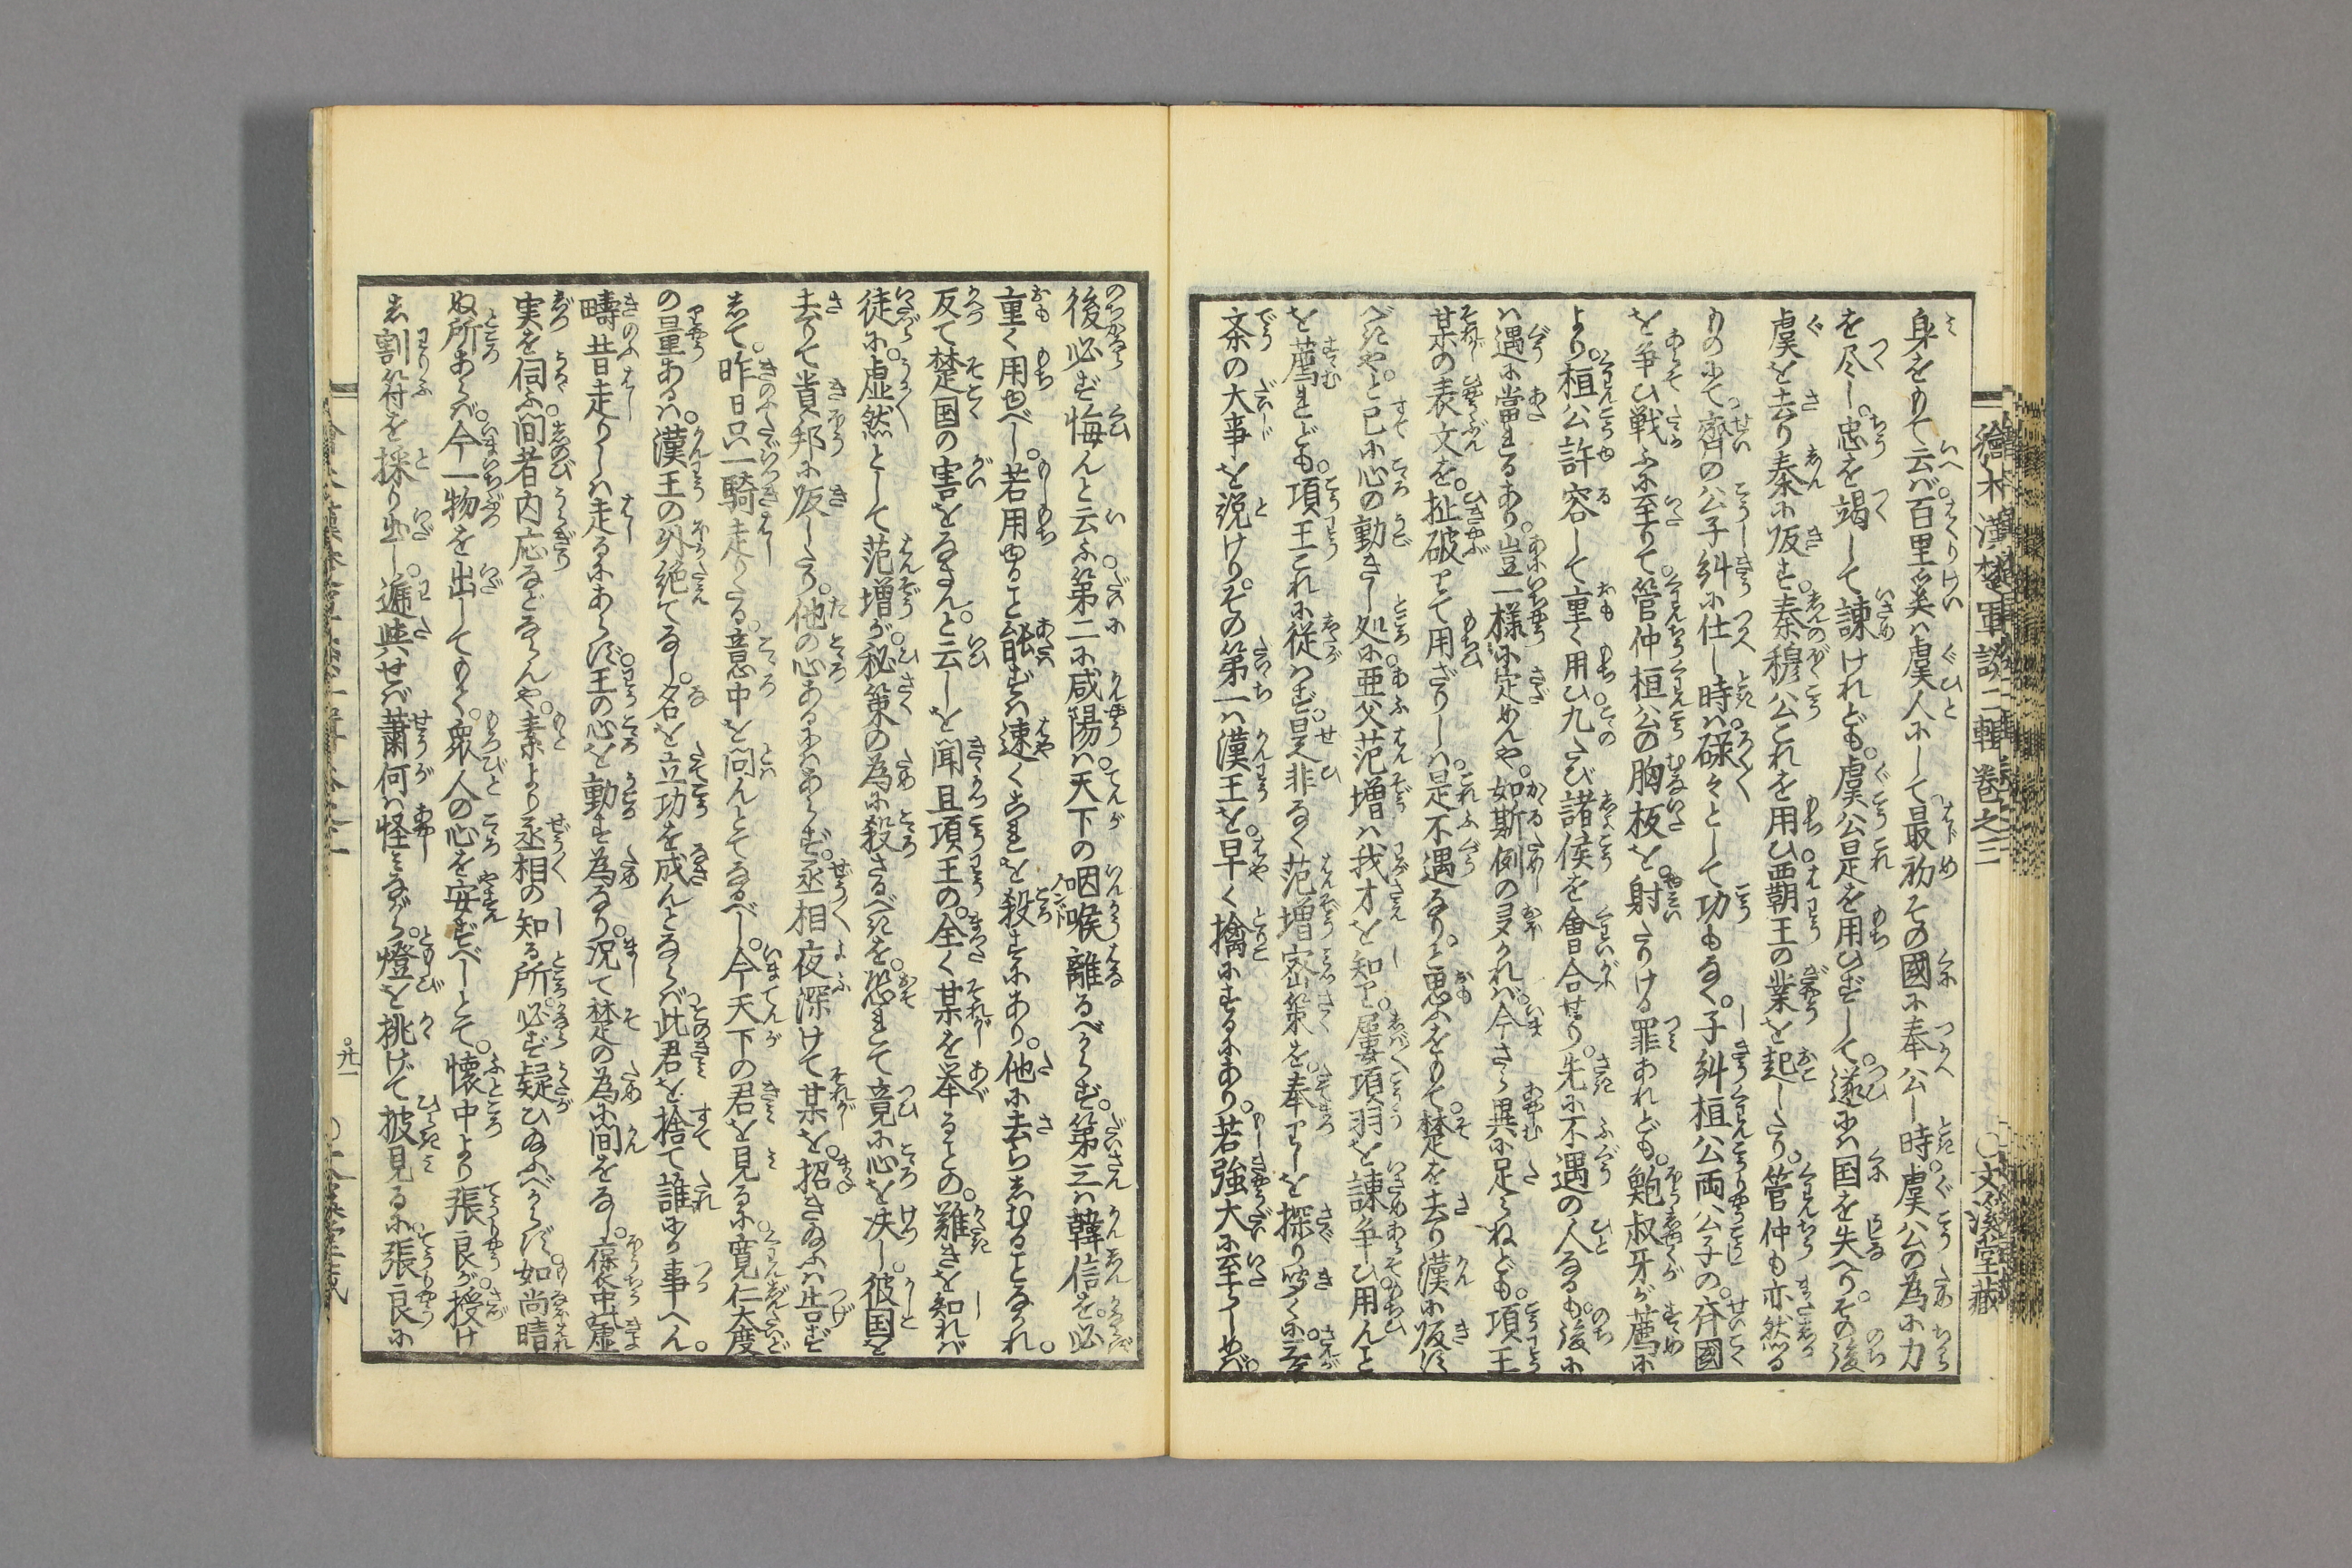 繪本漢楚軍談二輯巻之三
○文溪堂藏
身をもて云へば。百里奚は虞人にして最初その國に奉公し時。虞公の為に力
を尽し。忠を竭して諫けれども。虞公是を用ひずして。遂には国を失へり。その後
虞を去り秦に皈す。秦穆公これを用ひ。覇王の業を起したり。管仲も亦然る
ものにて。齊の公子糾に仕し時は。碌々として功もなく。子糾桓公両公子の。斉國
を争ひ戦ふに至りて。管仲桓公の胸板を。射たりける罪あれども。鮑叔牙が薦に
より。桓公許容して重く用ひ。九たび諸侯を會合せり。先に不遇の人なるも。後に
は遇に當まるあり。豈一様に定めんや。如斯例の多かれば。今さら異に足らねども。項王
某の表文を。扯破りて用ざりしは。是不遇なり。と思ふをもて。楚を去り漢に皈す
べきや。と已に心の動きし処に。亜父范増は我才を知り。屡項羽を諫争ひ用んと
を薦れども。項王これに従はず。是非なく范増密策を奉りしを探り聞くに。三ケ
条の大事を説けり。その第一は漢王を。早く擒にするにあり。若強大に至らしめば。
後必ず悔んと云ふ。第二に咸陽は。天下の咽喉離るべからず。第三は韓信を。必
重く用ゆべし。若用ゆること能ずは。速くこれを殺すにあり。他に去らしむることなかれ。
反て楚国の害をなさん。と云しを聞且項王の。全く某を挙ることの。難きを知れば
徒に。虚然として范増が。秘策の為に殺さるべきを。恐れて竟に心を决し。彼国を
去りて貴邦に皈したり。他の心あるにはあらず。丞相夜深けて某を。招きぬふは告ず
して。昨日只一騎走りたる。意中を問んとてなるべし。今天下の君を見るに。寛仁大度
の量あるは。漢王の外絶てなし。名を立功を成んとならば此君を捨て誰にか事へん。
疇昔走りしは走るにあらず。王の心を動す為なり。况て楚の為に間をなし。葆中虚
実を伺ふ。間者内応などならんや。素より丞相の知る所。必ず疑ひぬふべからず。如尚晴
ぬ所あらば。今一物を出してもて。衆人の心を安ずべしとて。懐中より張良が授け
し割符を採り出し。逓與せば蕭何は怪みながら。燈を挑げて披見るに。張良に
○廿一